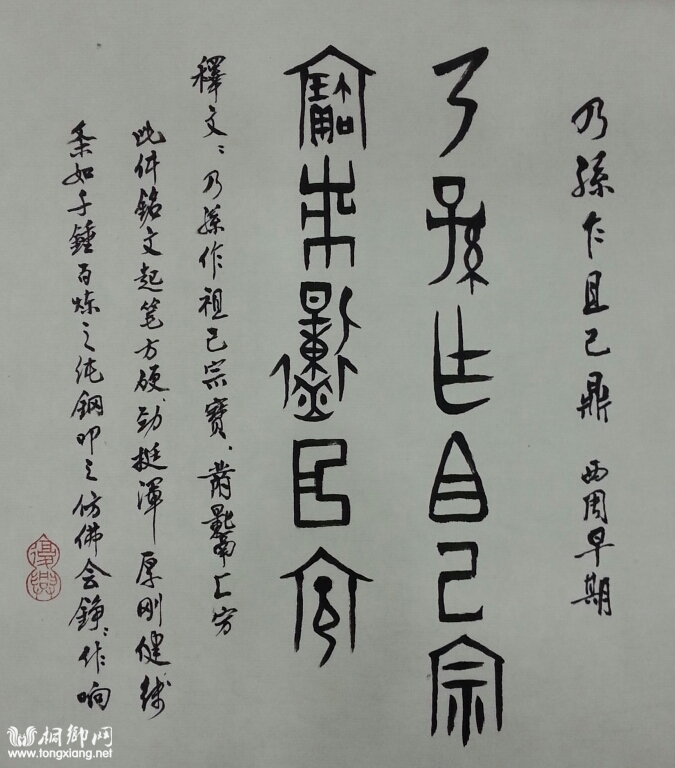 乃孫乍且己鼎 西周早期
乃孫乍且己宗
寶黹匚
釋文：乃孫作祖己宗寶、黹匚
此件銘文起笔方硬、劲挺渾厚刚健线
条如千錘百炼之纯鋼叩之仿佛会錚錚作响
桐鄉网
www.tongxiang.net